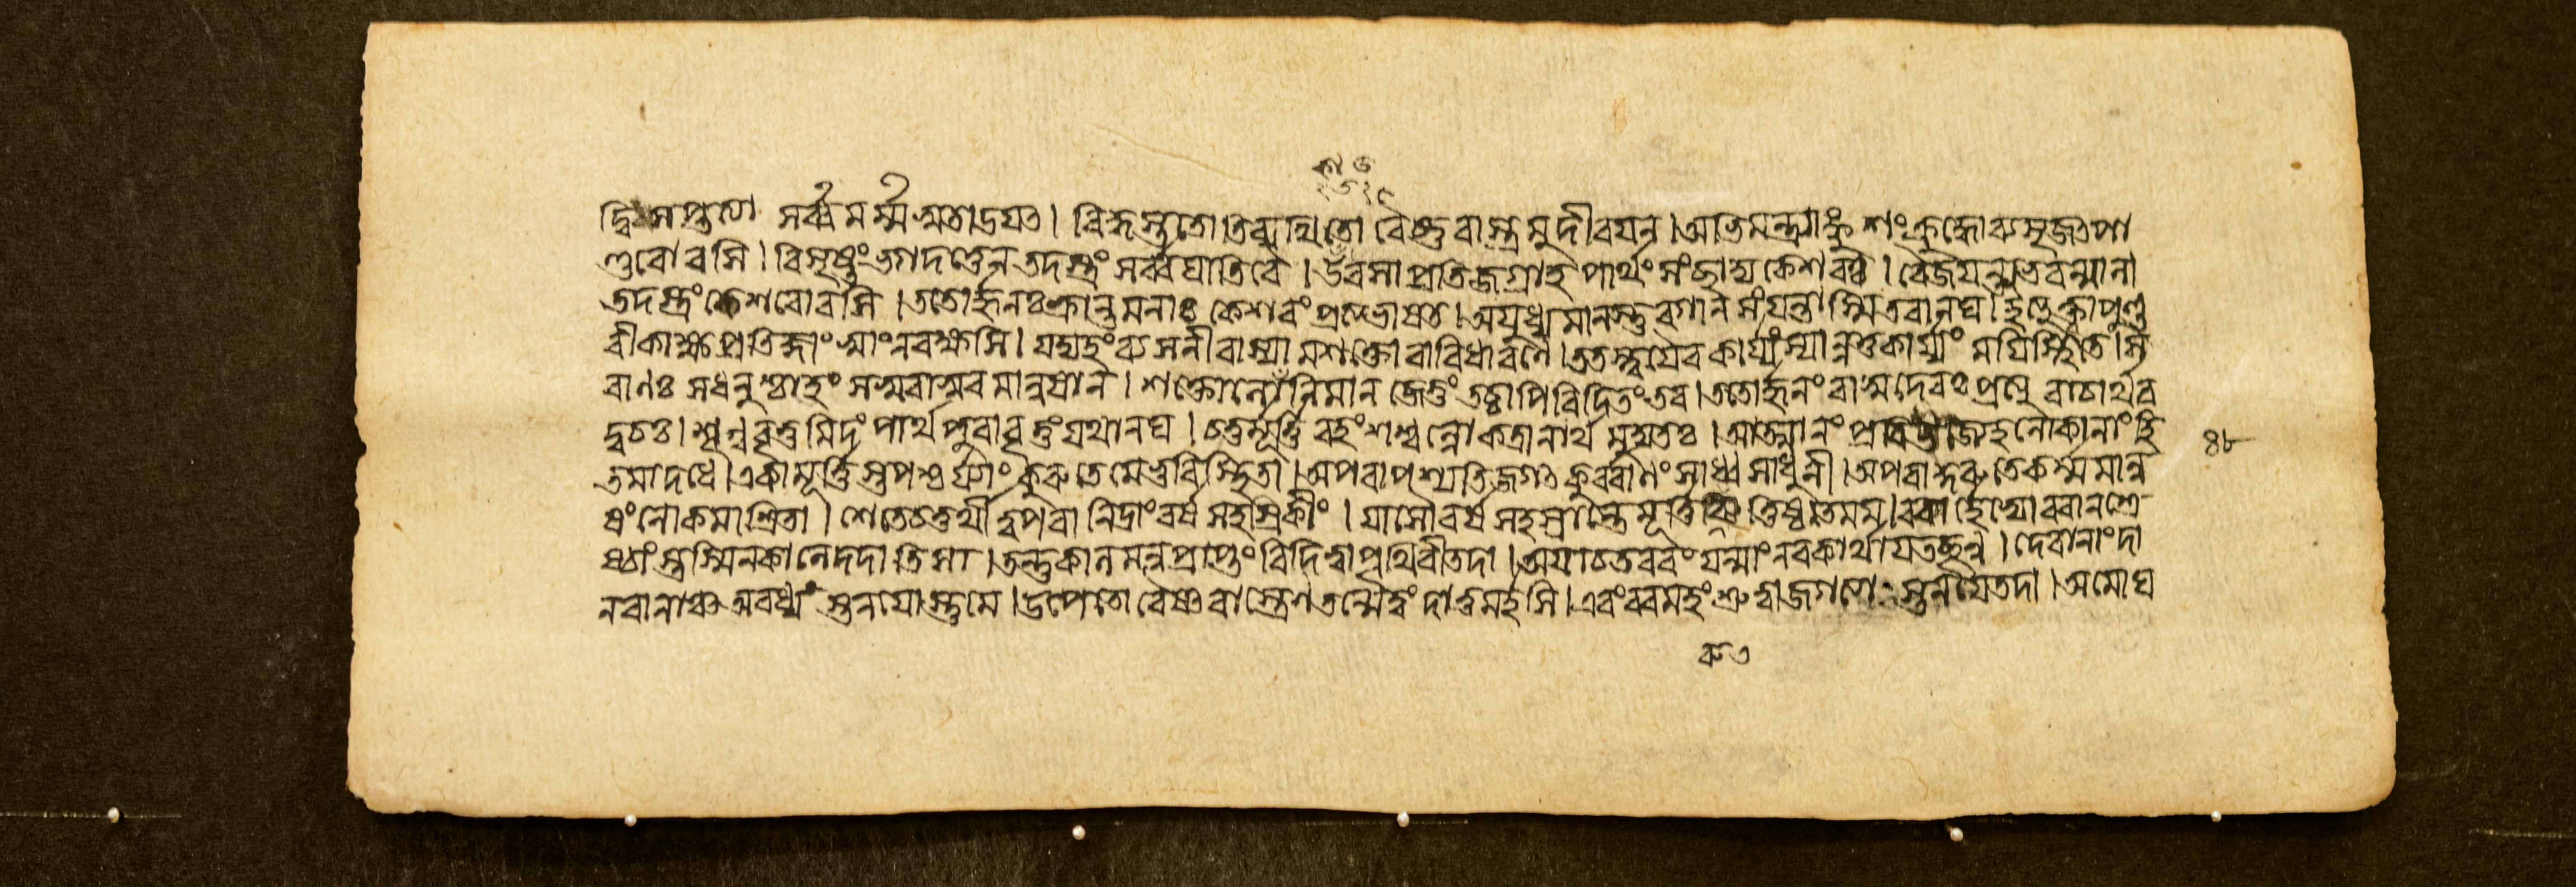 দ্বিসপ্তত্যা সর্ব্বমর্ম্মঅতাড়য়ৎ। বিদ্ধস্তুতোতিব্যথিতো বৈষ্ণবাস্ত্রমুদীরয়ন্।অভিমন্ত্র্যাঙ্কুশংক্রুদ্ধোব্যসৃজৎপা
ণ্ডবোরসি।বিসৃষ্টংভগদত্তেনতদস্ত্রংসর্ব্বঘাতিবৈ।উরসাপ্রতিজগ্রাহপার্থংসংছাদ্যকেশবঃ।বৈজয়ন্ত্যভবন্মালা
তদস্ত্রংকেশবোরসি।ততোর্জ্জুনঃক্লান্তমনাঃকেশবংপ্রত্যভাষত।অযুধ্যমানস্তুরগান্সংযন্তাস্মিতবানঘ।ইত্যুক্ত্বাপুণ্ড
রীকাক্ষপ্রতিজ্ঞাংস্বাংনরক্ষসি।যদ্যহংব্যসনীবাস্যামশক্তোবাবিধারণে।ততস্ত্বয়ৈবকার্য্যংস্যান্নতুকার্য্যংময়িস্থিতে।স
বাণঃসধনুশ্চাহংসসুরাসুরমানুষান্।শক্তোলোকানিমান্জেতুংতচ্চাপিবিদিতংতব।ততোর্জ্জুনংবাসুদেবঃপ্রত্যুবাচার্থব
দ্বচঃ।শৃণুবৃত্তমিদংপার্থপুরাবৃত্তংযথানঘ।চতুর্মূর্ত্তিরহংশশ্বল্লোকত্রাণার্থমুদ্যতঃ।আত্মানংপ্রবিভজ্যেহলোকানাংহি
তমাদধে।একামূর্ত্তিস্তপশ্চর্য্যাংকুরুতেমেভুবিস্থিতা।অপরাপশ্যতিজগৎকুর্ব্বাণংসাধ্বসাধুনী।অপরাকুরুতেকর্ম্মমানু
ষংলোকমাশ্রিতা।শেতেচতুর্থীত্বপরানিদ্রাংবর্ষসহস্রিকীং।যাসৌবর্ষসহস্রান্তেমূর্ত্তিরুত্তিষ্ঠতেমম।বরার্হেভ্যোবরান্শ্রে
ষ্ঠাংস্তস্মিন্কালেদদাতিসা।তন্তুকালমনুপ্রাপ্তংবিদিত্বাপৃথিবীতদা।অযাচতবরংযন্মাংনরকার্থায়তচ্ছৃণু।দেবানাংদা
নবানাঞ্চঅবধ্যস্তনয়োস্তুমে।উপেতোবৈষ্ণবাস্ত্রেণতন্মেত্বংদাতুমর্হসি।এবংবরমহংশ্রুত্বাজগত্যাস্তনয়েতদা।অমোঘ
৪৮